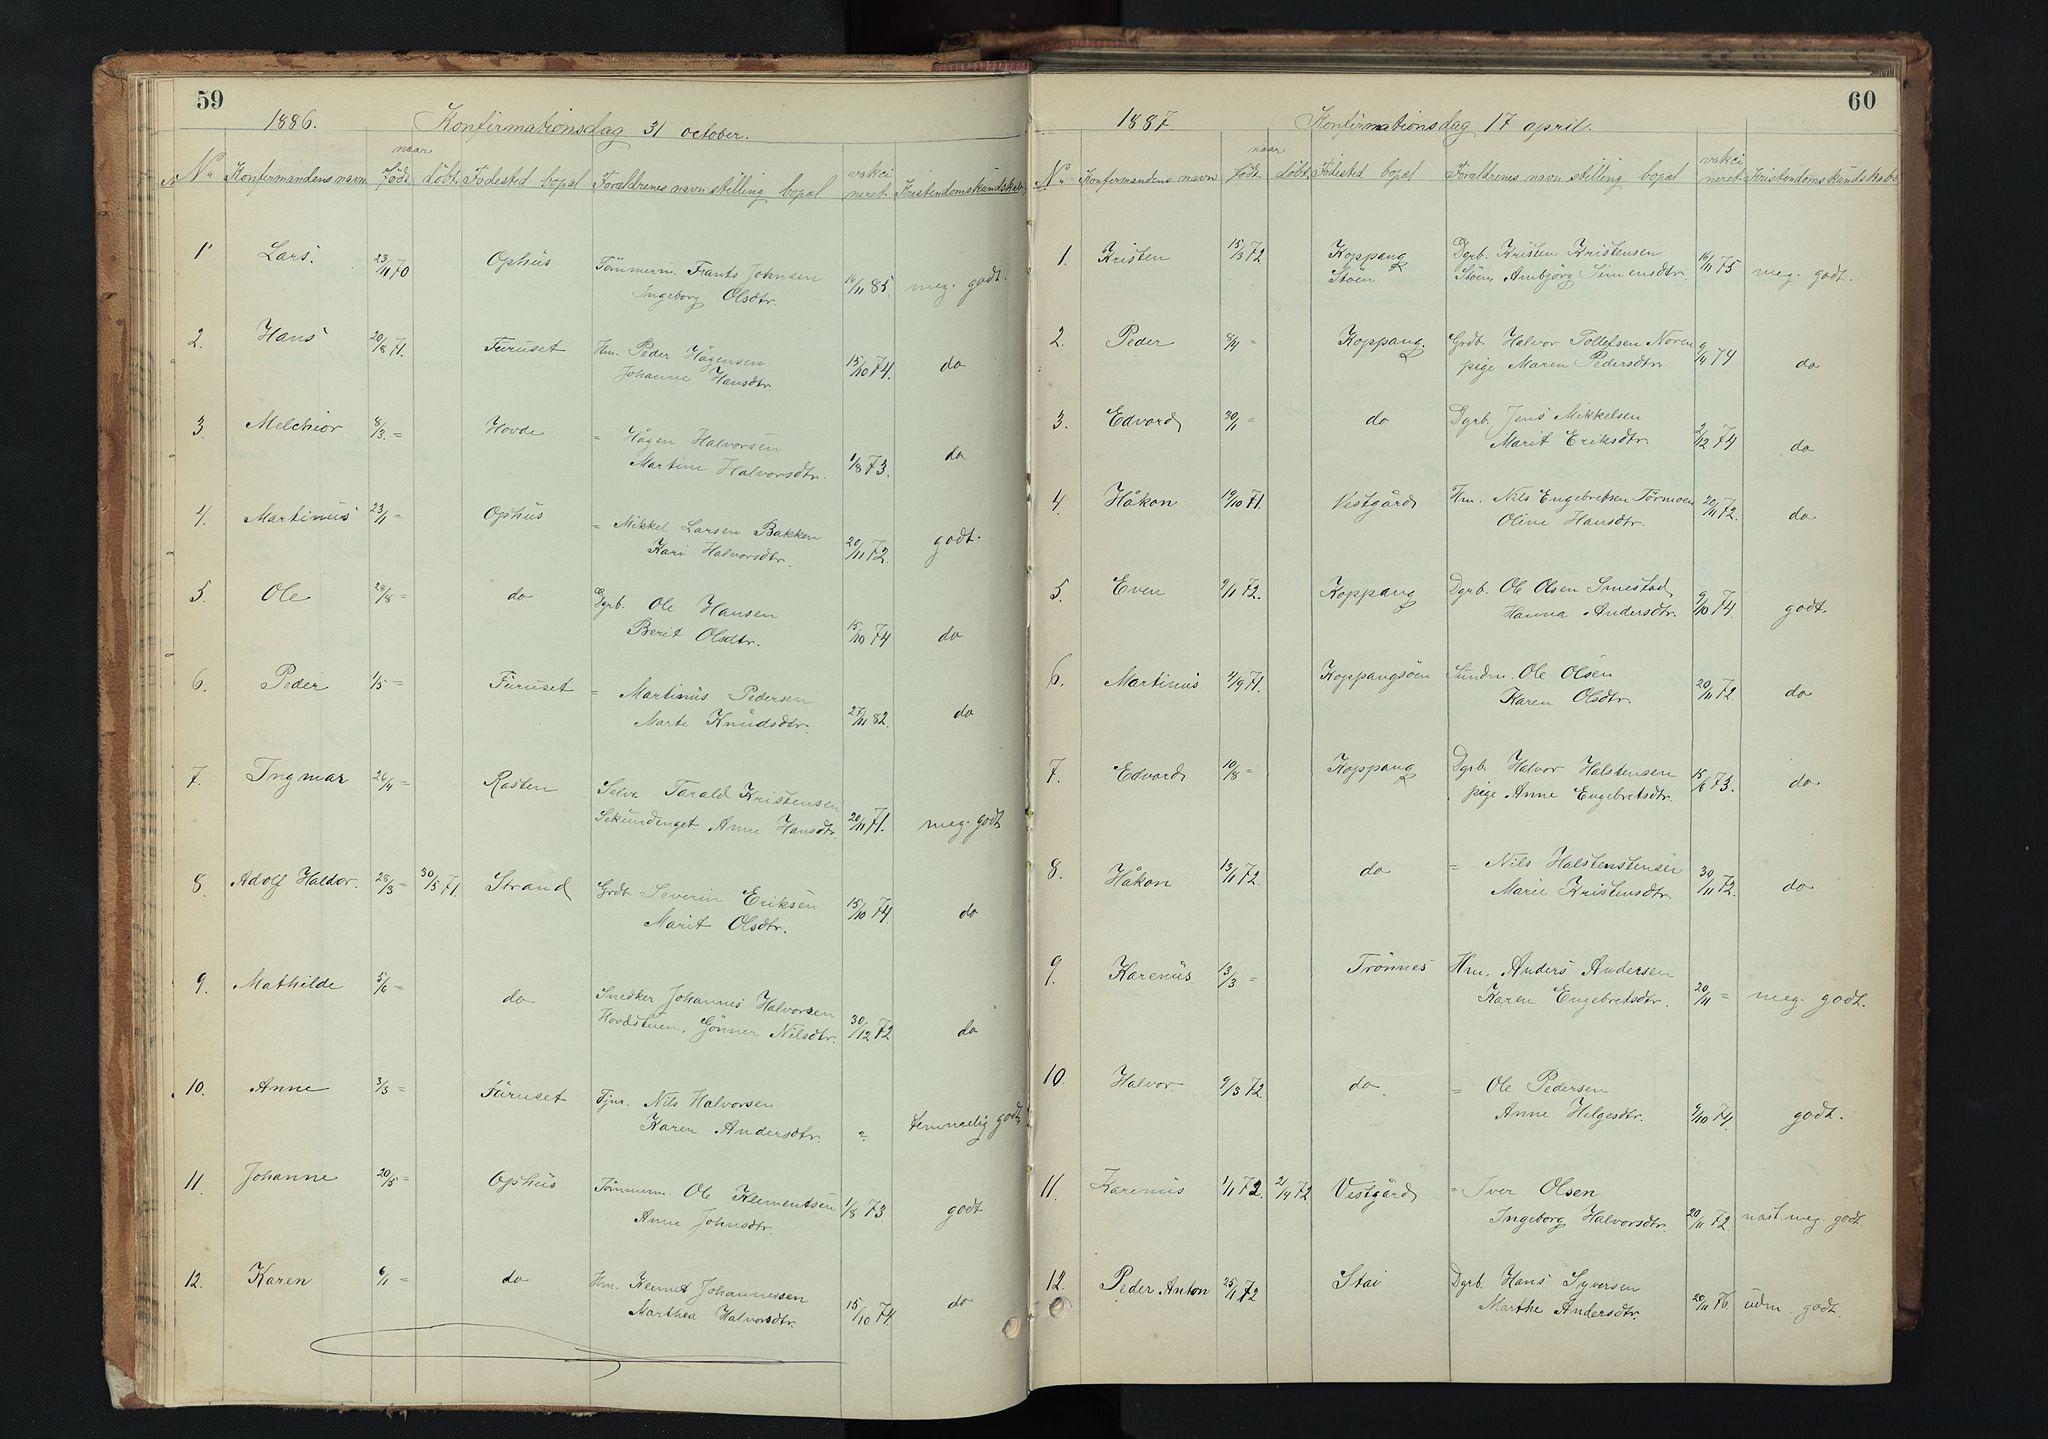 59
1886. Konfirmationsdag 31 october.
naar
No Konfirmandens navn født døbt Fødested bopæl Forældrenes navn stilling bopæl vakcineret Kristendomskundskab
1 Lars. 23/11 70 Ophus Tømmerm. Frants Johnsen
Ingeborg Olsdtr. 16/11 85 meg. godt.
2. Hans 20/8 71. Furuset Hm. Peder Hågensen
Johanne Hansdtr. 15/10 74. do
3. Melchior 8/3. = Hovde = Hågen Halvorsen
Martine Halvorsdtr. 1/8 73. do
4. Martinus 23/1 = Ophus = Mikkel Larsen Bakken
Kari Halvorsdtr. 20/11 72. godt.
5. Ole 28/8 = do Dgrb. Ole Hansen
Berit Olsdtr. 15/10 74 do
6. Peder 1/5 = Furuset = Martinus Pedersen
Marte Knudsdtr. 27/11 82. do
7. Ingmar 26/4 = Rasten Selve. Tarald Kristensen
Sekundenget Anne Hansdtr. 20/11 71. meg. godt
8. Adolf Haldor. 28/3 = 30/5 71. Strand Grdb. Severin Eriksen
Marit Olsdtr. 15/10 74. do
9. Mathilde 5/6 = do Snedker Johannes Halvorsen
Hovdstuen, Gønner Nilsdtr. 30/12 72 do
10. Anne 3/3 = Furuset Tjnr. Nils Halvorsen
Karen Andersdtr. ? temmelig godt
11. Johanne 20/5 = Ophus Tømmerm. Ole Klementsen
Anne Johnsdtr. 1/8 73 godt
12. Karen 6/1 = do Hm. Klemet Johannessen
Marthea Halvorsdtr. 15/10 74. do
60
1887. Konfirmationsdag 17 april.
naar
No Konfirmandens navn født døbt Fødested bopæl Forældrenes navn stilling bopæl vakcineret Kristendomskundskab
1. Kristen 15/3 72 Koppang Dgrb. Kristen Kristensen
Støen Støen, Ambjørg Simensdtr. 16/11 75 meg. godt.
2. Peder 8/4 = Koppang. Grdb. Halvor Tollefsen Noren
pige Maren Pedersdtr. 9/4 74 do
3. Edvard 30/1 = do Dgrb. Jens Mikkelsen
Marit Eriksdtr. 2/12 74 do
4. Håkon 19/10 71. Vestgård Hm. Nils Engebretsen Tørmoen
Oline Hansdtr. 20/11 72. do
5. Even 9/1 72. Koppang Dgrb. Ole Olsen Smestad
Hanna Andersdtr. 9/10 74. godt.
6. Martinus 2/9 71. Koppangsøen Sundm. Ole Olsen
Karen Olsdtr. 20/11 72 do
7. Edvard 10/8 = Koppang Dgrb. Halvor Halstensen
pige Anne Engebretsdtr. 15/6 73. do
8. Håkon 13/11 72. do = Nils Halstenstensen
Marie Kristensdtr. 30/11 72. do
9. Karenus 13/3 = Trønnes Hm. Anders Andersen
Karen Engebretsdtr. 20/11 = meg. godt.
10. Halvor. 9/3 72 do = Ole Pedersen
Anne Helgesdtr. 9/10 74. godt.
11. Karenus 1/1 72. 21/4 72 Vestgård = Iver Olsen
Ingeborg Halvorsdtr. 20/11 72. næst. meg. godt.
12. Peder Anton 25/1 72 Stai Dgrb. Hans Syversen
Marthe Andersdtr. 20/11 76. udm. godt.